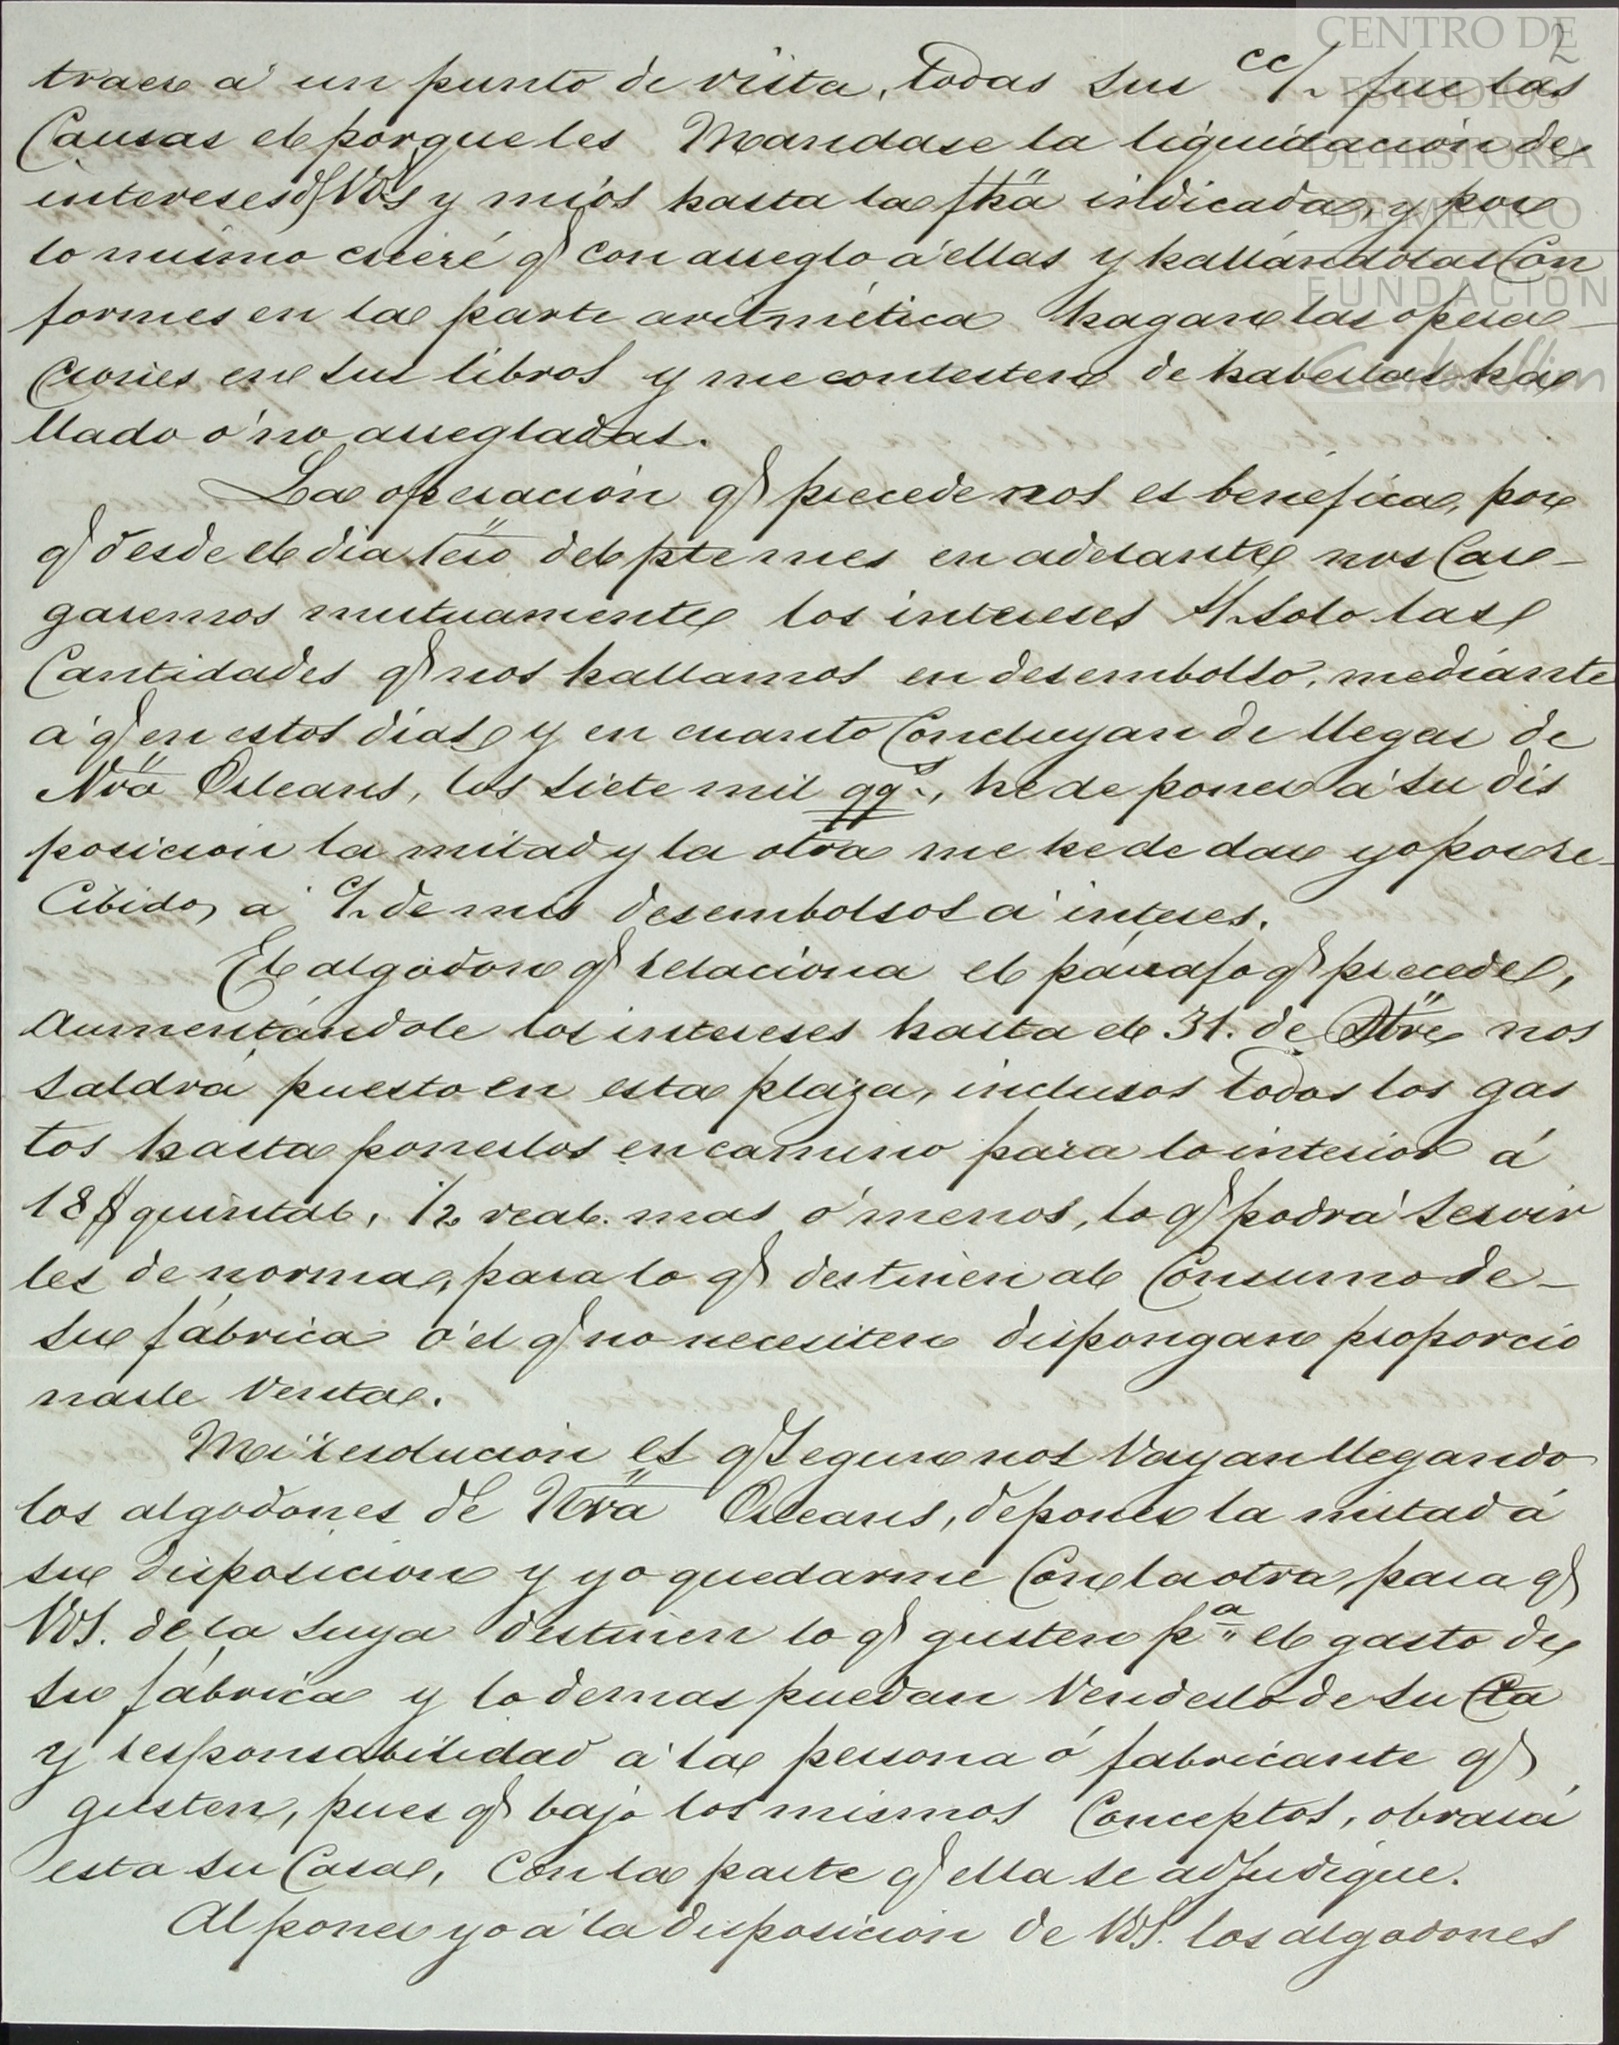 2
traer á un punto de vista, todas sus cc/. fue las
Causas el porque les Mandase la liquidacion de
intereses d VVs y mios hasta la fha indicada, y por
lo mismo creeré q con arreglo á ellas y hallándolas Con
formes en la parte aritmética hagan las opera-
ciones en sus libros y me contesten de haberlas ha
llado ó no arregladas.
La operación q precede nos es benéfica, por
q desde el dia 1ero del pte mes en adelante nos Car-
garemos mutuamente los intereses s/. solo las
Cantidades q nos hallamos en desembolso, mediante
á q en estos dias y en cuanto Concluyan de llegar de
Nva Orleans, los siete mil qqs., he de poner á su dis
posicion la mitad y la otra me he de dar yo por re-
Cibido, á c/. de mis desembolsos á interes.
El algodon q relaciona el párrafo q precede,
Aumentándole los intereses hasta el 31. de Dbre nos
saldrá puesto en esta plaza, inclusos todos los gas
tos hasta ponerlos en camino para lo interior á
18 $ quintal, 1/2 real. mas ó menos, lo q podrá servir
les de norma, para lo q destinen al Consumo de-
su fábrica ó el q no necesiten dispongan proporcio
narle venta.
Mi resolucion es q segun nos Vayan llegando
los algodones de Nva Orleans, de poner la mitad á
su disposicion y yo quedarme Con la otra, para q
VVS. de la suya destinen lo q gusten pa. el gasto de
su fábrica y lo demas puedan venderlo de su Cta
y responsabilidad á la persona ó fabricante q
gusten, pues q bajo los mismos Conceptos, obrará
esta su Casa, Con la parte q ella se adjudique.
Al poner yo á la disposicion de VVS. los algodones
CENTRO DE
ESTUDIOS
DE HISTORIA
DE MÉXICO
FUNDACIÓN
Carlos Slim